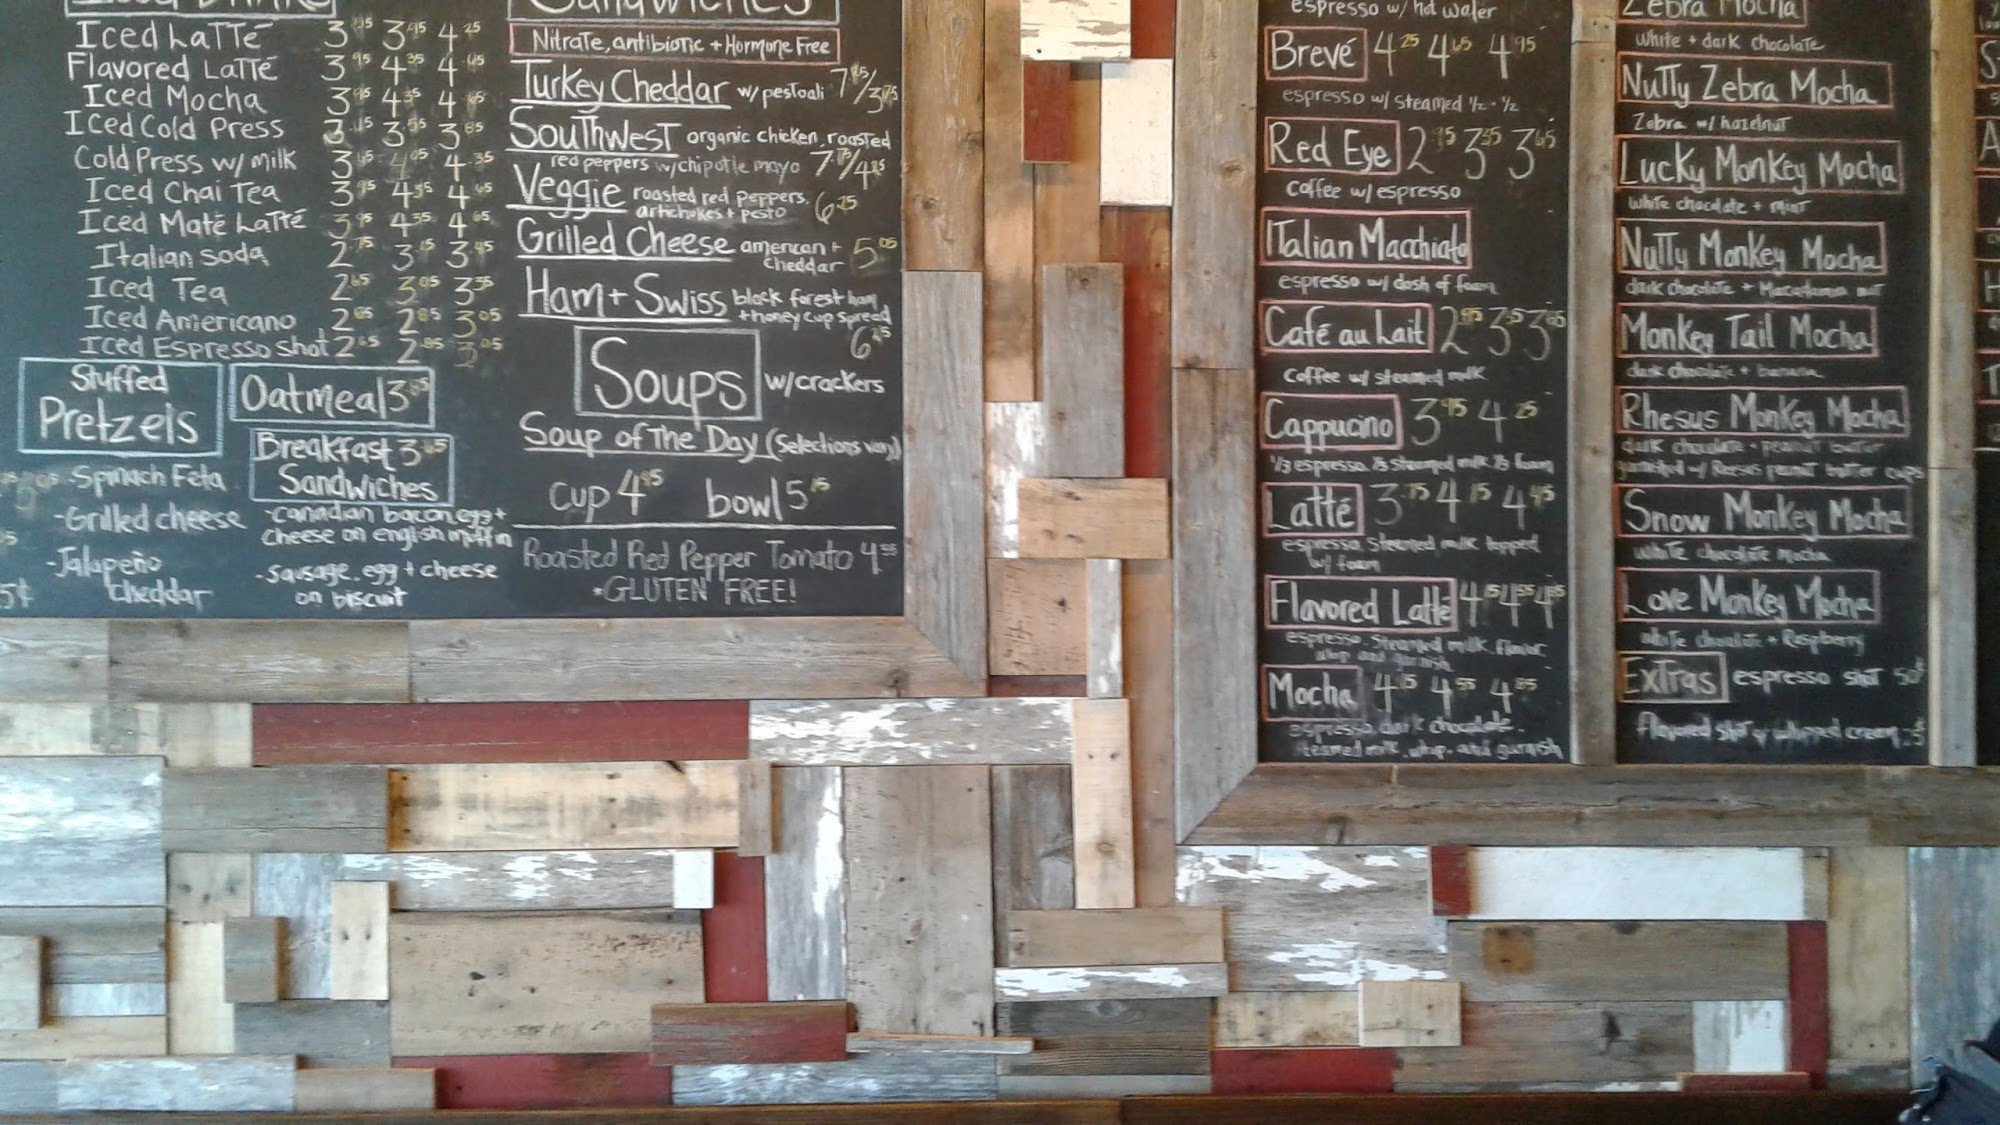 Iced Latté 3.95 3.95 4.25
Flavored Latté 3.95 4.35 4.65
Iced Mocha 3.95 4.35 4.65
Iced Cold Press 3.15 3.55 3.85
Cold Press w/ milk 3.65 4.05 4.35
Iced Chai Tea 3.95 4.35 4.65
Iced Maté Latté 3.95 4.35 4.65
Italian Soda 2.75 3.15 3.45
Iced Tea 2.65 3.05 3.35
Iced Americano 2.65 2.85 3.05
Iced Espresso Shot 2.65 2.85 3.05
Stuffed
Pretzels
-Spinach Feta
-Grilled cheese
-Jalapeño
cheddar
Oatmeal 3.85
Breakfast 3.65
Sandwiches
-Canadian bacon, egg +
cheese on english muffin
-Sausage, egg + cheese
on biscuit
Sandwiches
Nitrate, antibiotic + Hormone Free
Turkey Cheddar w/ pestoali 7.15/3.75
Southwest organic chicken, roasted
red peppers w/ chipotle mayo 7.75/4.25
Veggie roasted red peppers,
artichokes + pesto 6.25
Grilled Cheese american +
cheddar 5.05
Ham + Swiss black forest ham
+ honey cup spread
6.25
Soups w/ crackers
Soup of The Day (Selections vary)
cup 4.45 bowl 5.15
Roasted Red Pepper Tomato 4.55
*GLUTEN FREE!
espresso w/ hot water
Brevé 4.25 4.65 4.95
espresso w/ steamed ½ · ½
Red Eye 2.95 3.35 3.65
coffee w/ espresso
Italian Macchiato
espresso w/ dash of foam
Café au Lait 2.95 3.35 3.65
Coffee w/ steamed milk
Cappucino 3.95 4.25
⅓ espresso ⅓ steamed milk ⅓ foam
Latté 3.75 4.15 4.45
espresso, steamed milk topped
w/ foam
Flavored Latté 4.15 4.55 4.85
espresso, steamed milk, flavor,
whip and garnish
Mocha 4.15 4.55 4.85
espresso, dark chocolate,
steamed milk, whip, and garnish
Zebra Mocha
white + dark chocolate
Nutty Zebra Mocha
Zebra w/ hazelnut
Lucky Monkey Mocha
white chocolate + mint
Nutty Monkey Mocha
dark chocolate + Macadamia nut
Monkey Tail Mocha
dark chocolate + banana
Rhesus Monkey Mocha
dark chocolate + peanut butter
garnished w/ Reesus peanut butter cups
Snow Monkey Mocha
white chocolate mocha
Love Monkey Mocha
white chocolate + Raspberry
Extras espresso shot 50¢
Flavored shot or whipped cream